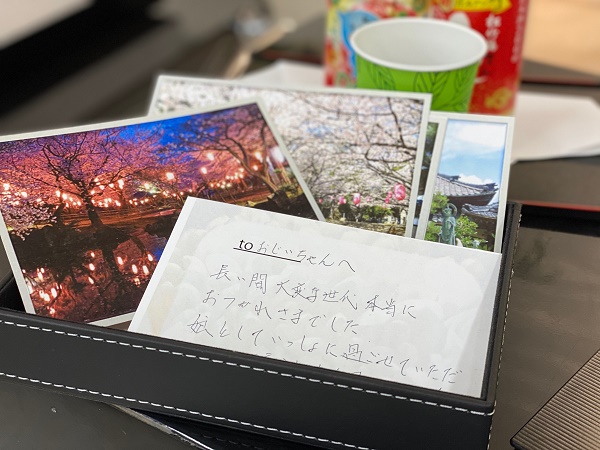 to おじいちゃんへ
長い間 大変な世代 本当に
おつかれさまでした
娘としていっしょに過ごせていただ